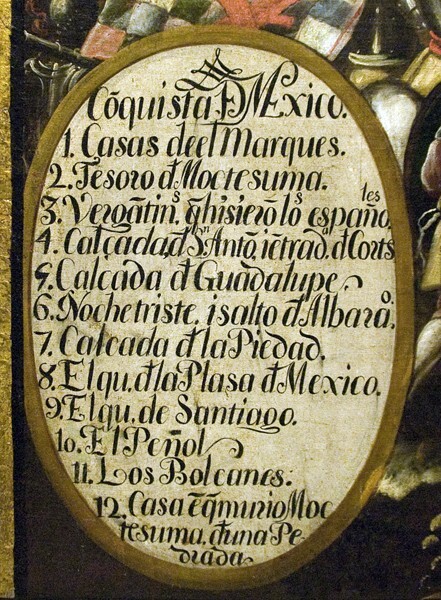 Cõquista đ Mexico.
1. Casas de el Marques.
2. Tesoro đ Moctesuma.
3. Vergãtin.s q̃ hisierõ los españo.les
4. Calçada, đ S.n Antõ, iẽtrada đ Corts
5. Calçada đ Guadalupe
6. Noche triste, i salto đ Albara.o
7. Calcada đ la Piedad.
8. El qu. đ la Plasa đ Mexico.
9. El qu. de Santiago.
10. El Peñol
11. Los Bolcanes.
12. Casa ẽ q̃ murio Moc
tesuma, đ una Pe-
drada